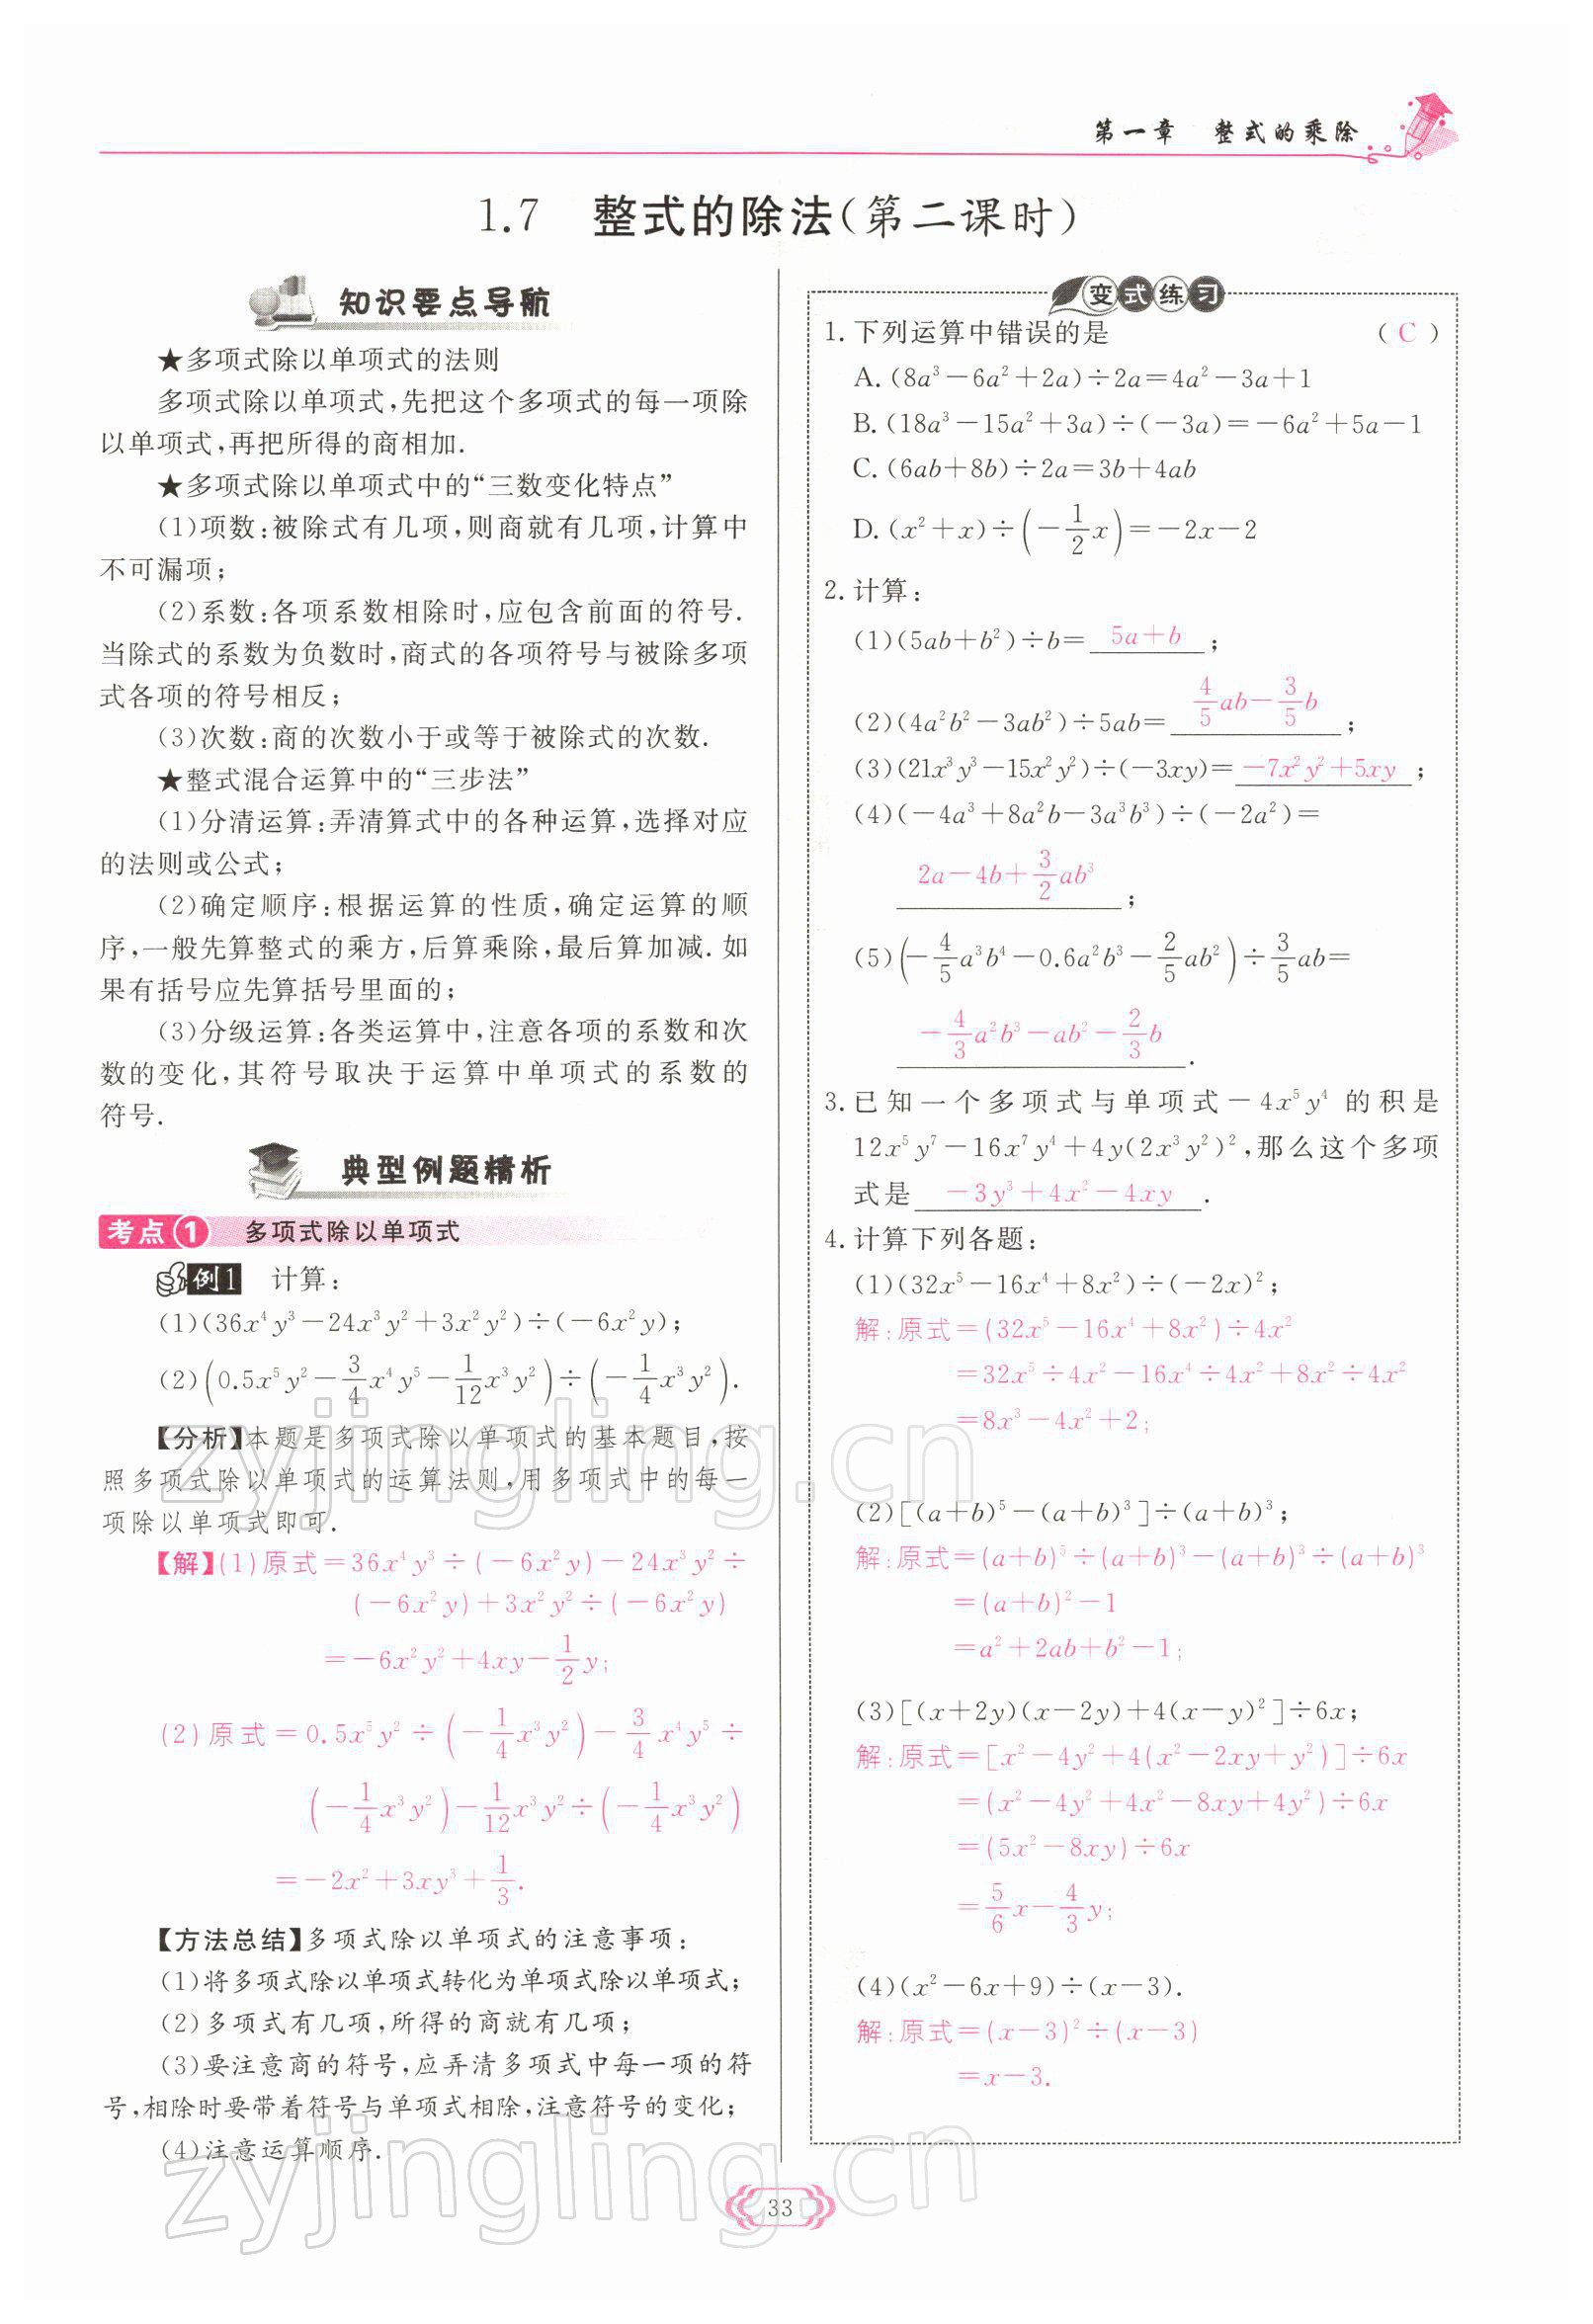 第一章 整式的乘除
1.7 整式的除法(第二课时)
知识要点导航
★多项式除以单项式的法则
多项式除以单项式,先把这个多项式的每一项除
以单项式,再把所得的商相加.
★多项式除以单项式中的“三数变化特点”
(1)项数:被除式有几项,则商就有几项,计算中
不可漏项;
(2)系数:各项系数相除时,应包含前面的符号.
当除式的系数为负数时,商式的各项符号与被除多项
式各项的符号相反;
(3)次数:商的次数小于或等于被除式的次数.
★整式混合运算中的“三步法”
(1)分清运算:弄清算式中的各种运算,选择对应
的法则或公式;
(2)确定顺序:根据运算的性质,确定运算的顺
序,一般先算整式的乘方,后算乘除,最后算加减.如
果有括号应先算括号里面的;
(3)分级运算:各类运算中,注意各项的系数和次
数的变化,其符号取决于运算中单项式的系数的
符号.
典型例题精析
考点1 多项式除以单项式
例1 计算:
(1)(36x⁴y³-24x³y²+3x²y²)÷(-6x²y);
(2)(0.5x⁵y²-3/4x⁴y⁵-1/12x³y²)÷(-1/4x³y²).
【分析】本题是多项式除以单项式的基本题目,按
照多项式除以单项式的运算法则,用多项式中的每一
项除以单项式即可.
【解】(1)原式=36x⁴y³÷(-6x²y)-24x³y²÷
(-6x²y)+3x²y²÷(-6x²y)
=-6x²y²+4xy-1/2y;
(2)原式=0.5x⁵y²÷(-1/4x³y²)-3/4x⁴y⁵÷
(-1/4x³y²)-1/12x³y²÷(-1/4x³y²)
=-2x²+3xy³+1/3.
【方法总结】多项式除以单项式的注意事项:
(1)将多项式除以单项式转化为单项式除以单项式;
(2)多项式有几项,所得的商就有几项;
(3)要注意商的符号,应弄清多项式中每一项的符
号,相除时要带着符号与单项式相除,注意符号的变化;
(4)注意运算顺序.
变式练习
1.下列运算中错误的是 (C)
A.(8a³-6a²+2a)÷2a=4a²-3a+1
B.(18a³-15a²+3a)÷(-3a)=-6a²+5a-1
C.(6ab+8b)÷2a=3b+4ab
D.(x²+x)÷(-1/2x)=-2x-2
2.计算:
(1)(5ab+b²)÷b=5a+b;
(2)(4a²b²-3ab²)÷5ab=4/5ab-3/5b;
(3)(21x³y³-15x²y²)÷(-3xy)=-7x²y²+5xy;
(4)(-4a³+8a²b-3a³b³)÷(-2a²)=
2a-4b+3/2ab³;
(5)(-4/5a³b⁴-0.6a²b³-2/5ab²)÷3/5ab=
-4/3a²b³-ab²-2/3b.
3.已知一个多项式与单项式-4x⁵y⁴的积是
12x⁵y⁷-16x⁷y⁴+4y(2x³y²)²,那么这个多项
式是 -3y³+4x²-4xy.
4.计算下列各题:
(1)(32x⁵-16x⁴+8x²)÷(-2x)²;
解:原式=(32x⁵-16x⁴+8x²)÷4x²
=32x⁵÷4x²-16x⁴÷4x²+8x²÷4x²
=8x³-4x²+2;
(2)[(a+b)⁵-(a+b)³]÷(a+b)³;
解:原式=(a+b)⁵÷(a+b)³-(a+b)³÷(a+b)³
=(a+b)²-1
=a²+2ab+b²-1;
(3)[(x+2y)(x-2y)+4(x-y)²]÷6x;
解:原式=[x²-4y²+4(x²-2xy+y²)]÷6x
=(x²-4y²+4x²-8xy+4y²)÷6x
=(5x²-8xy)÷6x
=5/6x-4/3y;
(4)(x²-6x+9)÷(x-3).
解:原式=(x-3)²÷(x-3)
=x-3.
33
zyjingling.cn
zyjingling.cn